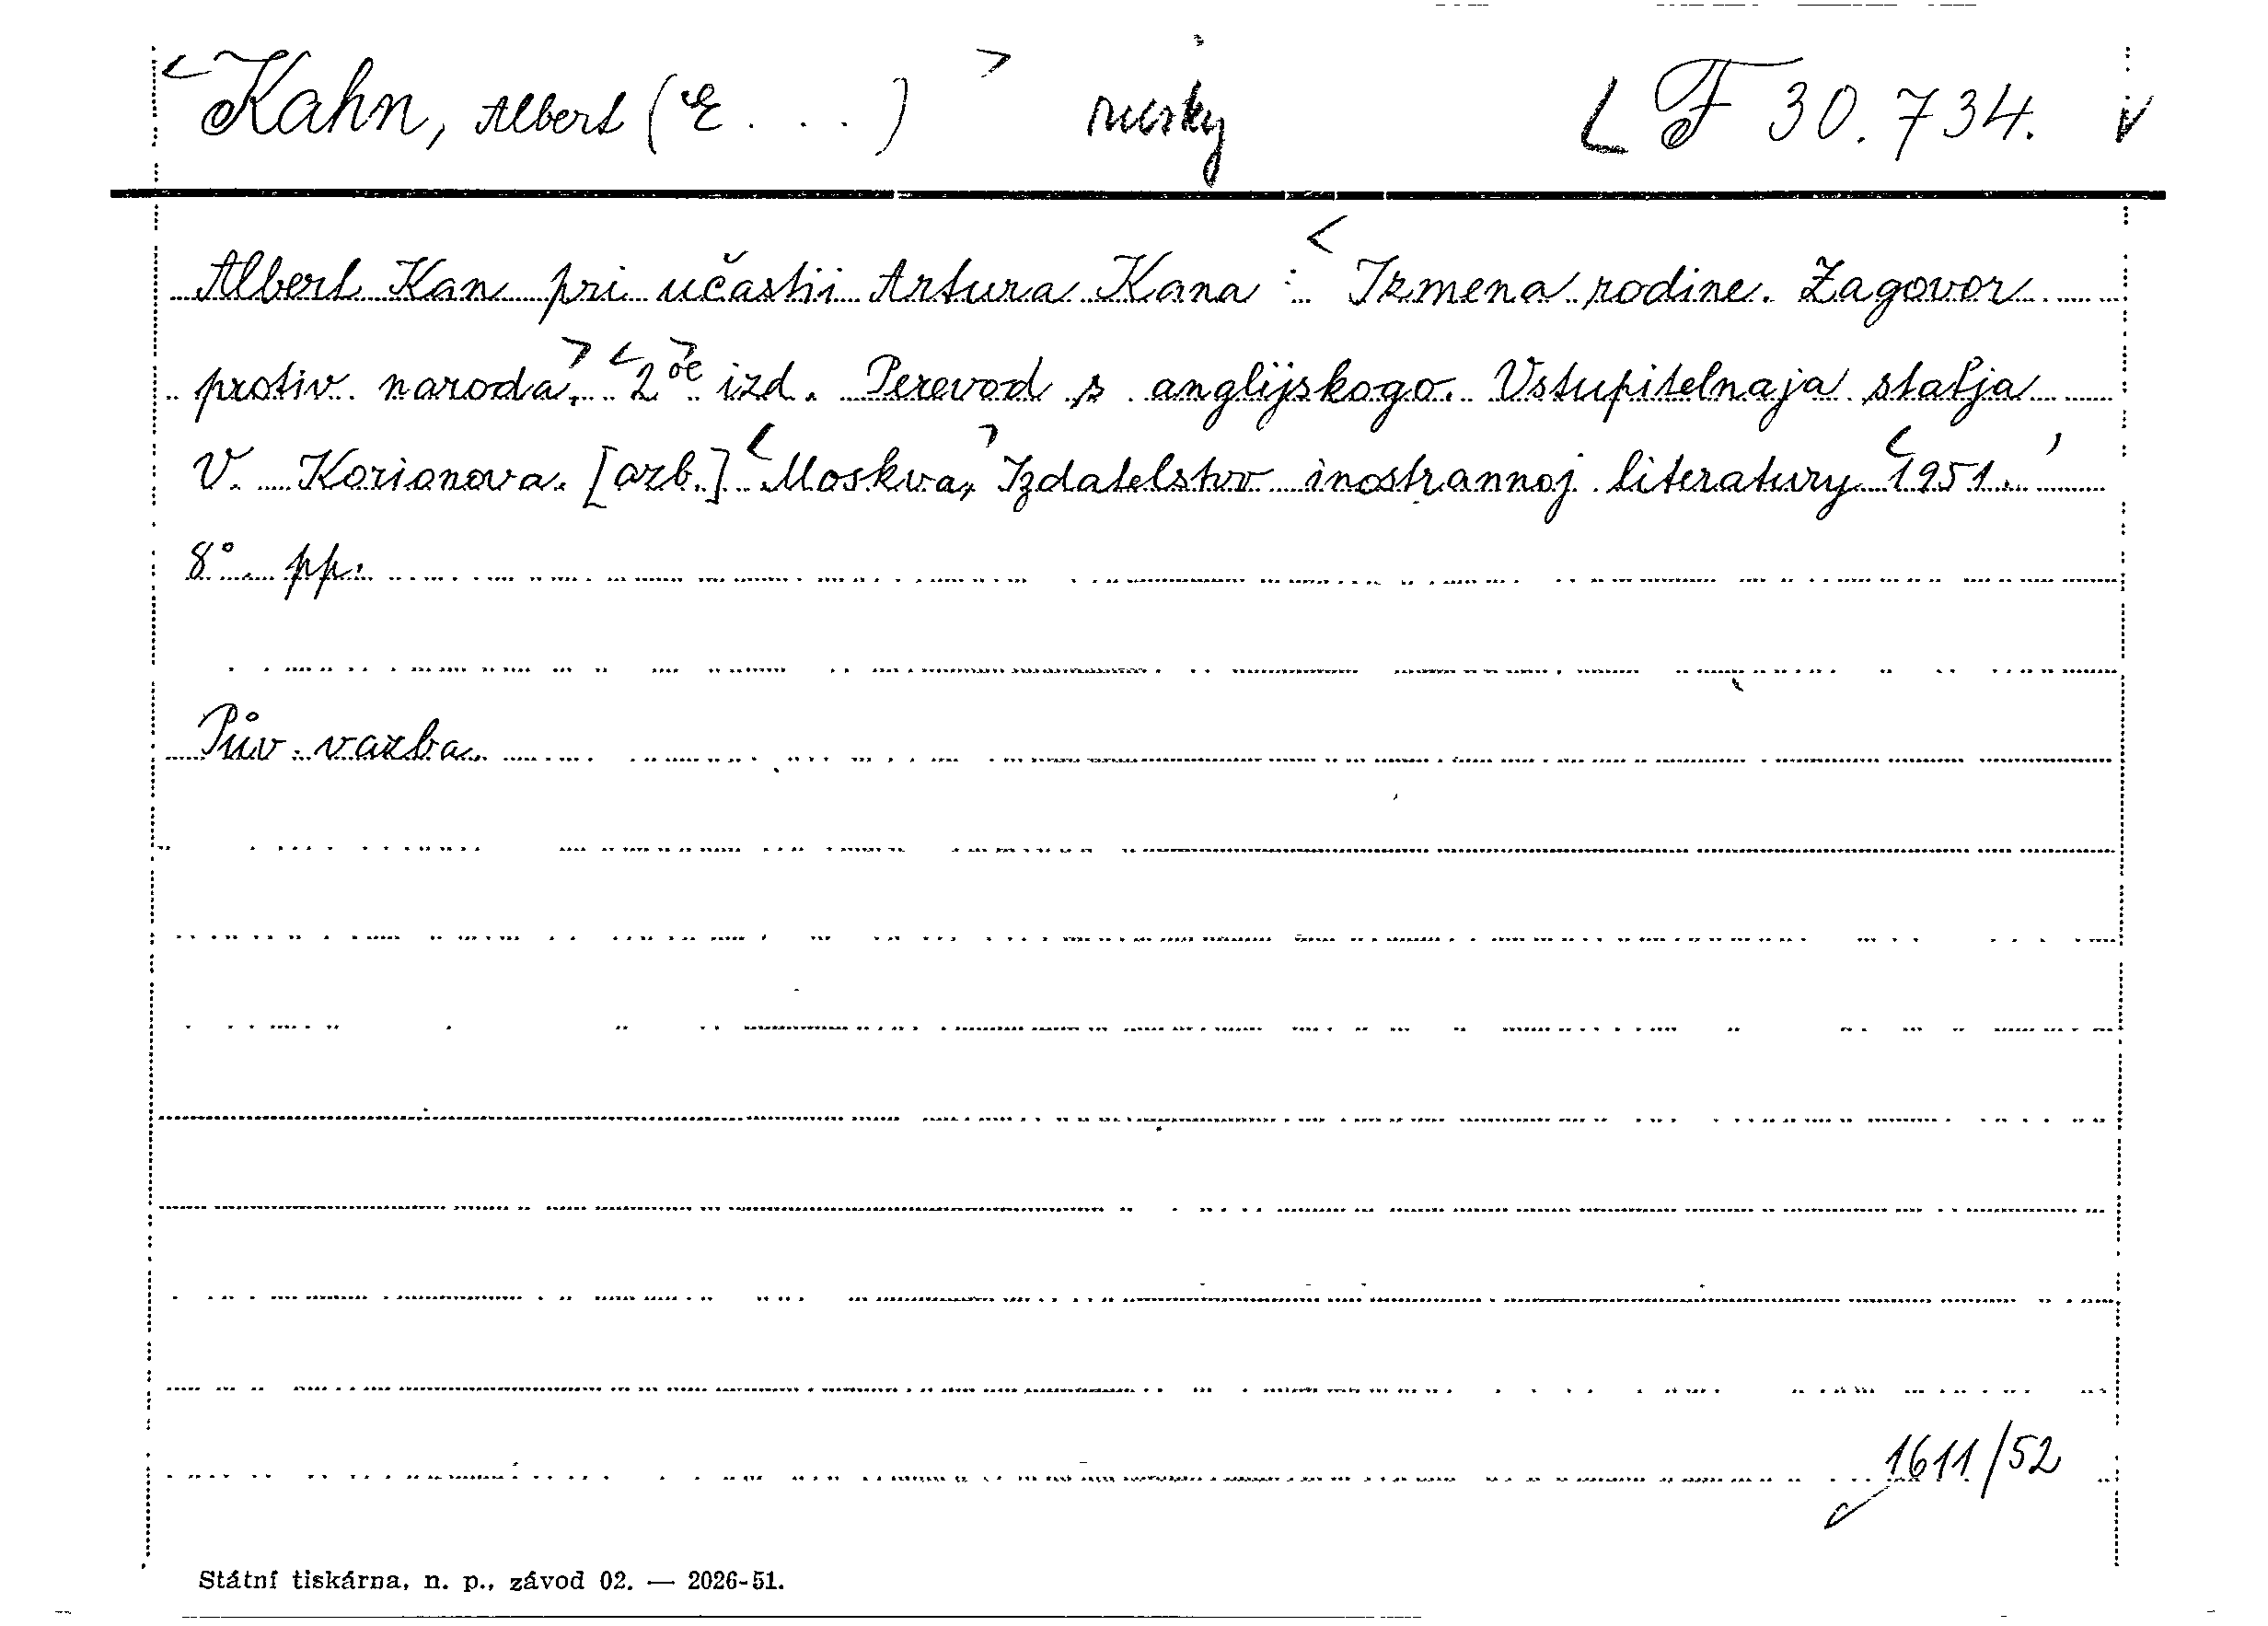 <Kahn, Albert (E...)> rusky [F 30.734. v
Albert Kan pri učastii Artura Kana: <Izmena rodine. Zagovor
protiv naroda.> <2>oe izd. Perevod s anglijskogo. Vstupitelnaja statja
V. Korionova. [azb.] <Moskva,> Izdatelstvo inostrannoj literatury <1951.>
8°. pp.
Pův. vazba.
1611/52
Státní tiskárna, n. p., závod 02. — 2026-51.